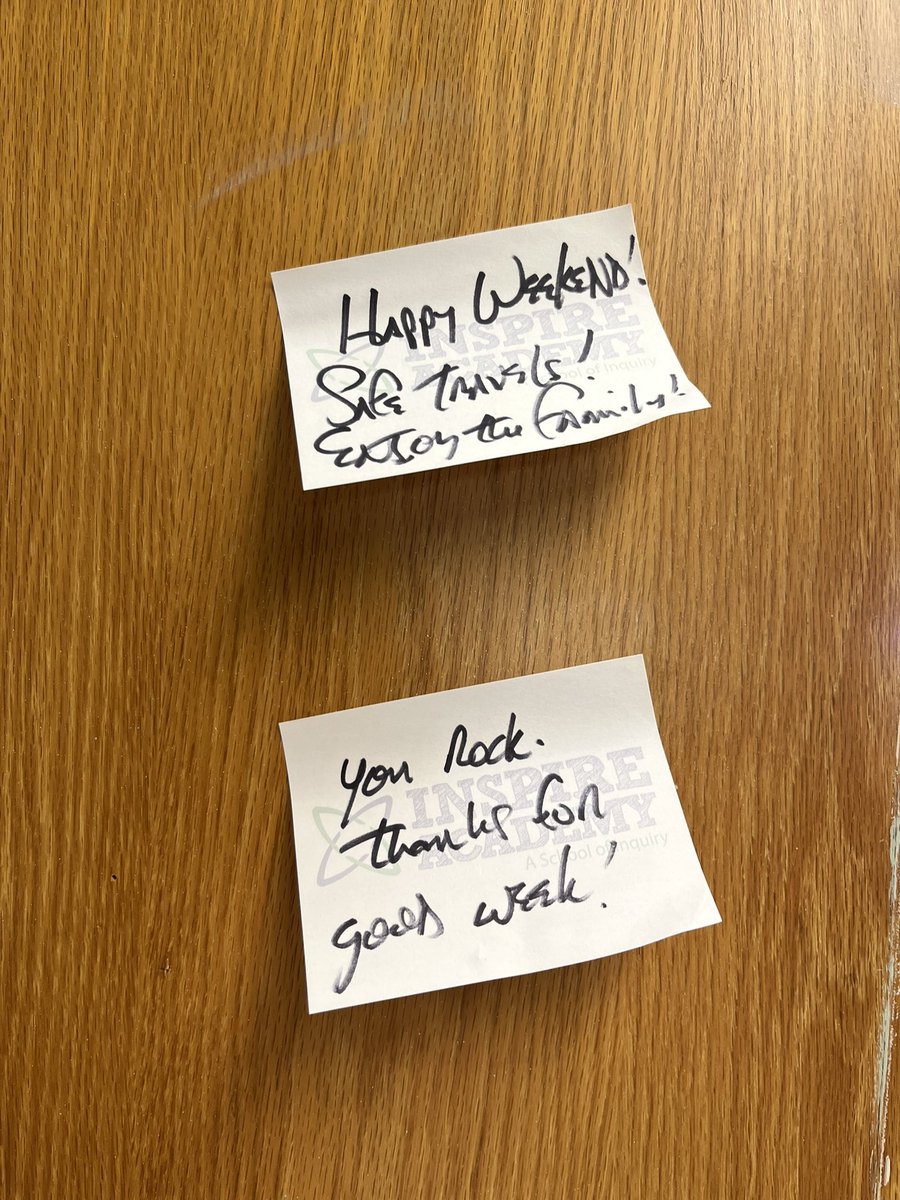 Happy Weekend!
Safe travels!
Enjoy the family!
INSPIRE
ACADEMY
School of Inquiry
You Rock.
thanks for
good week!
INSPIRE
ACADEMY
A School of Inquiry